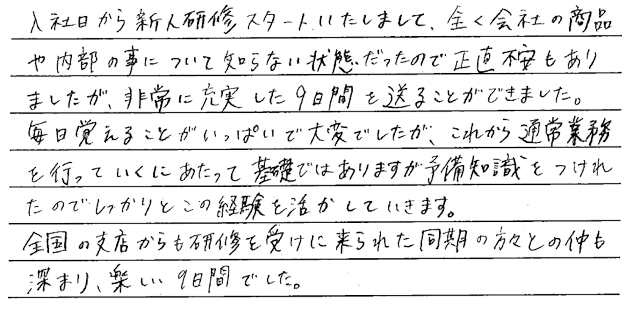 入社日から新人研修スタートいたしまして、全く会社の商品
や内部の事について知らない状態だったので正直不安もあり
ましたが、非常に充実した9日間を送ることができました。
毎日覚えることがいっぱいで大変でしたが、これから通常業務
を行っていくにあたって基礎ではありますが予備知識をつけれ
たのでしっかりとこの経験を活かしていきます。
全国の支店からも研修を受けに来られた同期の方々との仲も
深まり、楽しい9日間でした。